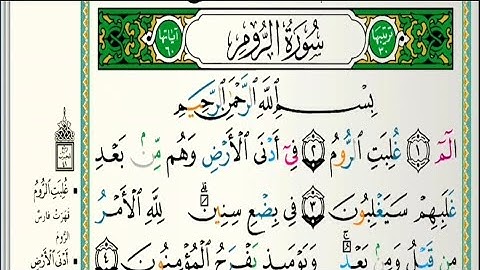 ترتيبها ٣٠ سُورَةُ الرُّومِ آياتها ٦٠
بِسْمِ ٱللَّهِ ٱلرَّحْمَٰنِ ٱلرَّحِيمِ
الٓمٓ ١ غُلِبَتِ ٱلرُّومُ ٢ فِىٓ أَدْنَى ٱلْأَرْضِ وَهُم مِّنۢ بَعْدِ
غَلَبِهِمْ سَيَغْلِبُونَ ٣ فِى بِضْعِ سِنِينَ ۗ لِلَّهِ ٱلْأَمْرُ
مِن قَبْلُ وَمِنۢ بَعْدُ ۚ وَيَوْمَئِذٍ يَفْرَحُ ٱلْمُؤْمِنُونَ ٤
غُلِبَتِ ٱلرُّومُ
قَهَرَتْ فارسُ
الرُّومَ
أَدْنَى ٱلْأَرْضِ